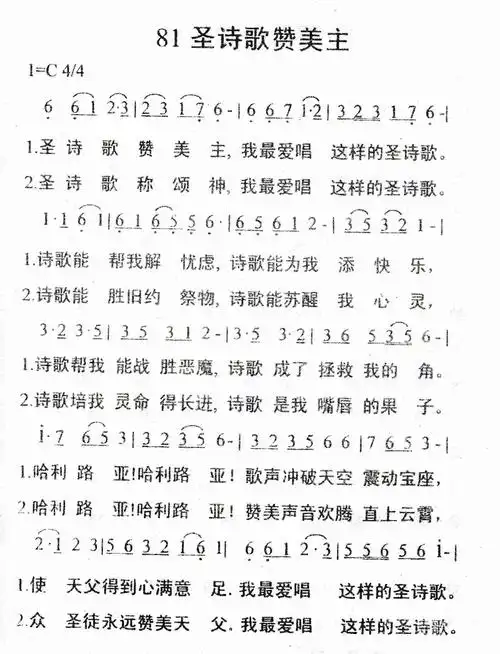 81 圣诗歌赞美主
1=C 4/4
6 6 1 2·3|2 3 1 7 6 -|6 6 7 1·2|3 2 3 1 7 6-|
1.圣 诗 歌 赞 美 主, 我最爱唱 这样的圣诗歌。
2.圣 诗 歌 称 颂 神, 我最爱唱 这样的圣诗歌。
1·1 6 1|6 1 6 5 5 6·|6 5 6 1 2 -|3 5 3 2 1 -|
1.诗歌能 帮我解 忧虑, 诗歌能为我 添 快 乐,
2.诗歌能 胜旧约 祭物, 诗歌能苏醒 我 心 灵,
3·2 3·5|3 5 3 1 2 -|3·5 3·2|3 6 5 3 5 6 -|
1.诗歌帮我 能战 胜恶魔, 诗歌 成了 拯救 我的 角。
2.诗歌培我 灵命 得长进, 诗歌 是我 嘴唇 的果 子。
i·7 6 5 3|3 2 3 5 6-|3 5 6 7 6 5 6|7 6 5 3-|
1.哈利 路 亚!哈利路 亚! 歌声冲破天空 震动宝座,
2.哈利 路 亚!哈利路 亚! 赞美声音欢腾 直上云霄,
2·1 2 3|5 6 3 2 1 6 1| 6 6 1 2·3|5 5 6 5 6 i-|
1.使 天父得到心满意 足. 我最爱唱 这样的圣诗歌。
2.众 圣徒永远赞美天 父. 我最爱唱 这样的圣诗歌。